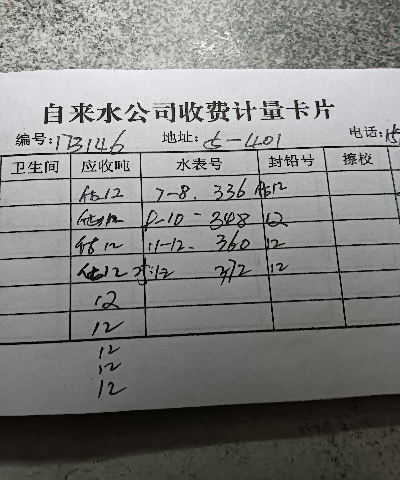 自来水公司收费计量卡片
编号:173146 地址: 5-401 电话:
卫生间 应收吨 水表号 封铅号 擦校
估12 7-8. 336 估12
估12 8-10- 348 12
估12 11-12- 360 12
估12 12 372 12
12
12
12
12
12